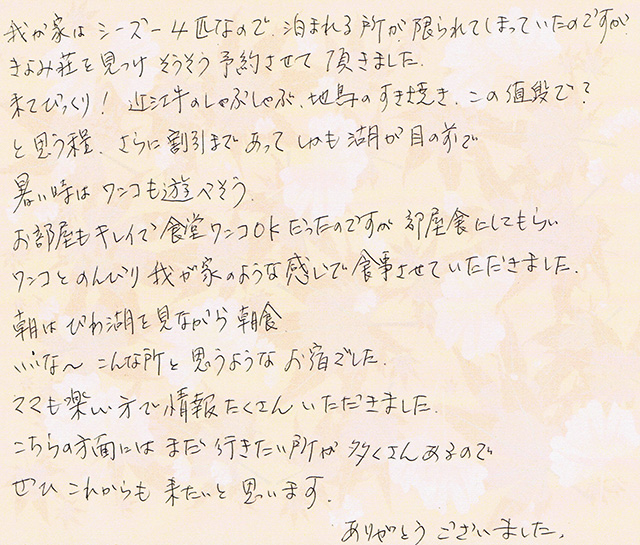 我が家はシーズー4匹なので、泊まれる所が限られてしまっていたのですが
きよみ荘を見つけそうそう予約させて頂きました。
来てびっくり！近江牛のしゃぶしゃぶ、地鳥のすき焼き、この値段で？
と思う程、さらに割引まであってしかも湖が目の前で
暑い時はワンコも遊べそう。
お部屋もキレイで食堂ワンコOKだったのですが部屋食にしてもらい
ワンコとのんびり我が家のような感じで食事させていただきました。
朝はびわ湖を見ながら朝食
いいな〜こんな所と思うようなお宿でした。
ママも楽しい方で情報たくさんいただきました。
こちらの方面にはまだ行きたい所が多くさんあるので
ぜひこれからも来たいと思います。
ありがとうございました。